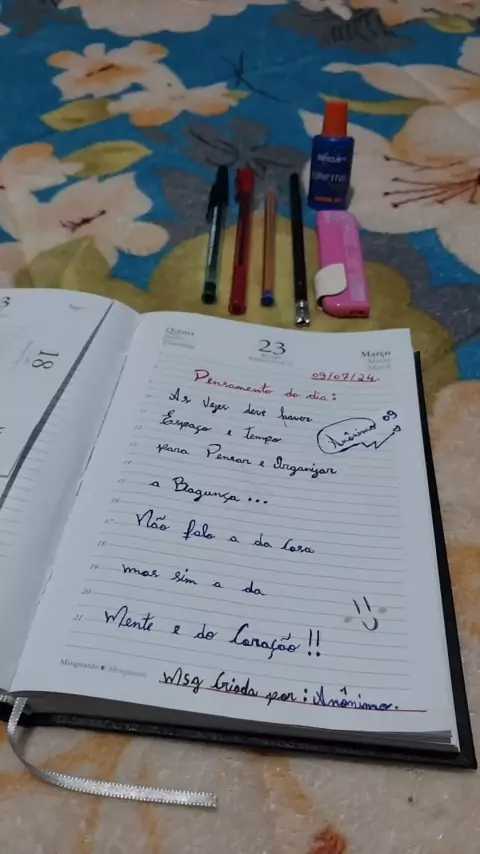 3
18
Quinta
23
Março
09/07/24
Pensamento do dia:
As Vezes deve haver
Espaço e Tempo
Anônimo 09
para Pensar e Organizar
a Bagunça...
Não falo a da Casa
mas sim a da
Mente e do Coração!!
Minguante
Msg Criada por: Anônimo.